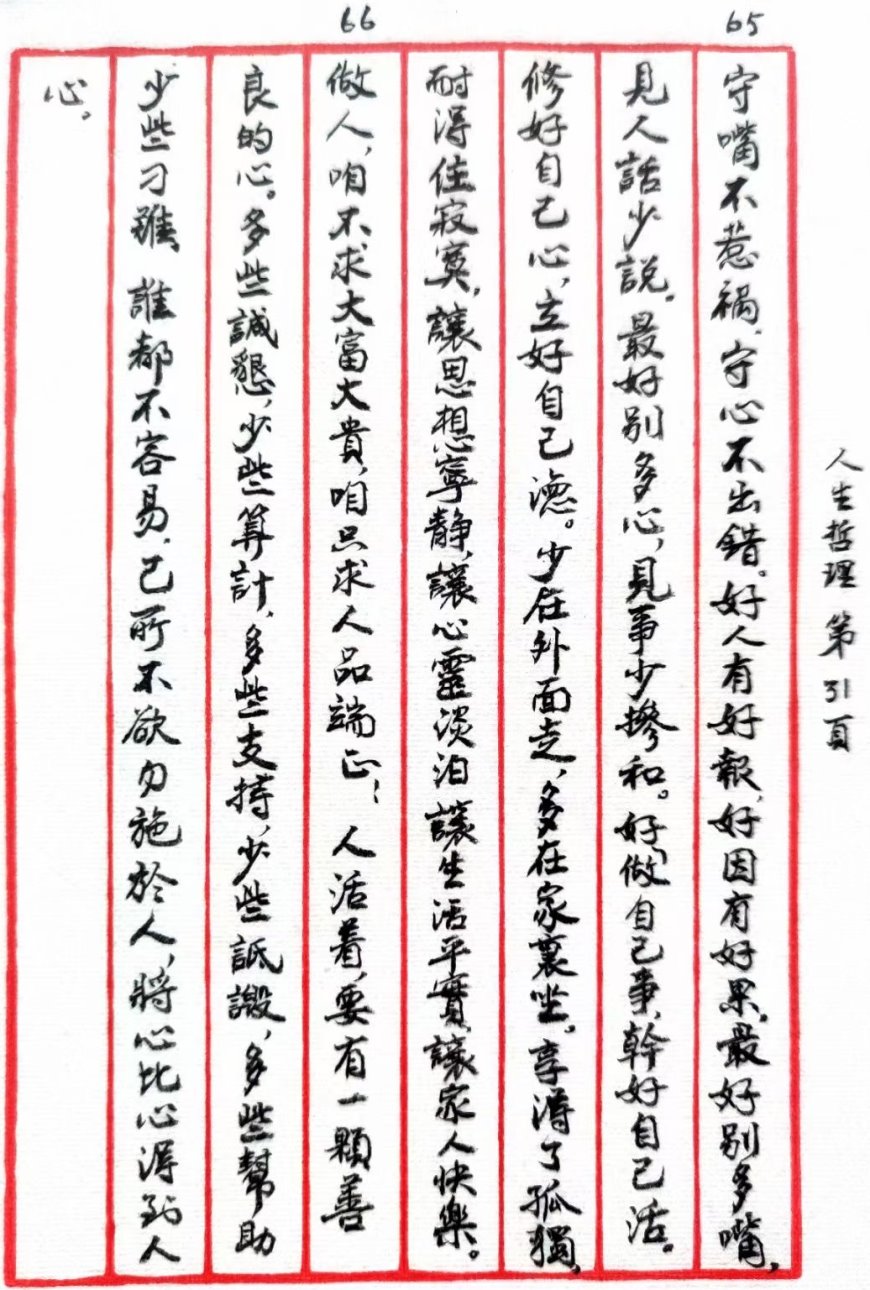 人生哲理 第31頁
65
守嘴不惹禍，守心不出錯。好人有好報，好因有好果。最好别多嘴，
見人話少説。最好别多心，見事少摻和。好做自己事，幹好自己活。
修好自己心，立好自己德。少在外面走，多在家裏坐。享得了孤獨，
耐得住寂寞，讓思想寧静，讓心靈淡泊，讓生活平實，讓家人快樂。
66
做人，咱不求大富大貴，咱只求人品端正！人活着，要有一顆善
良的心。多些誠懇，少些算計，多些支持，少些詆譭，多些幫助
少些刁難，誰都不容易，己所不欲勿施於人，將心比心得到人
心。